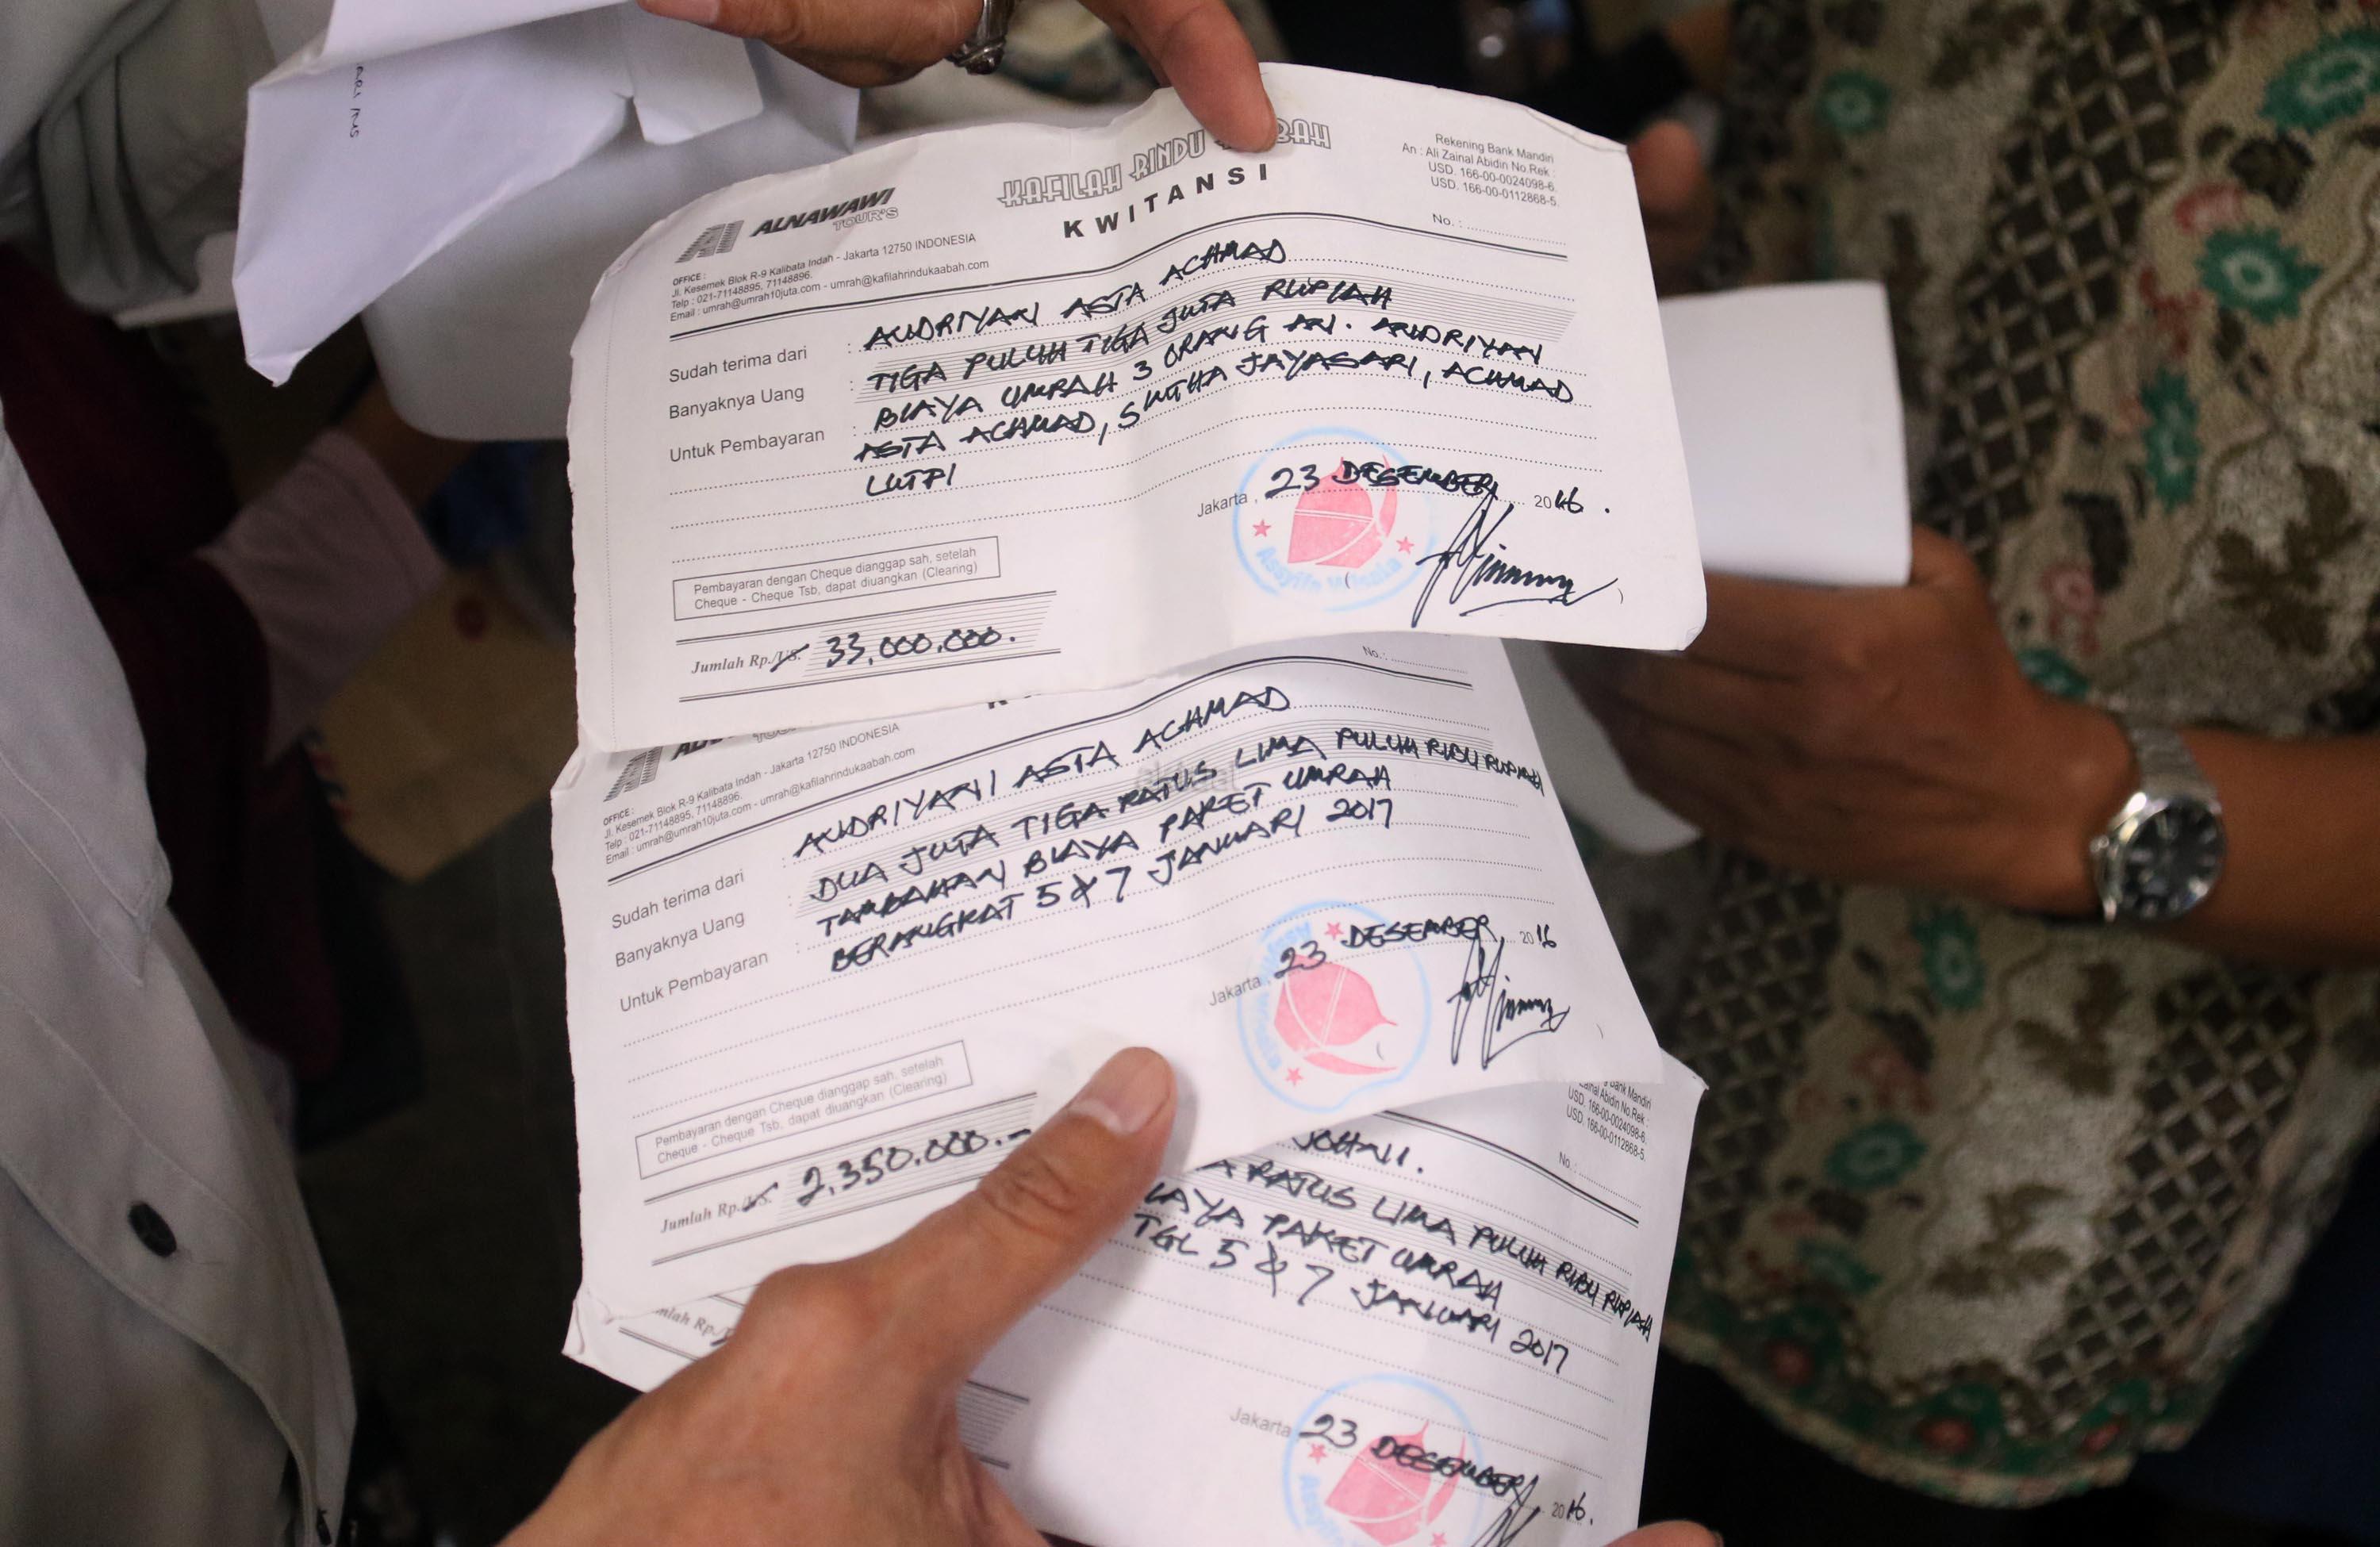 ALNAWAWI
TOUR'S
KAFILAH RINDU BAH
KWITANSI
Rekening Bank Mandiri
An : Ali Zainal Abidin No.Rek :
USD. 166-00-0024098-6.
USD. 166-00-0112868-5.
No. :
OFFICE :
Jl. Kesemek Blok R-9 Kalibata Indah - Jakarta 12750 INDONESIA
Telp : 021-71148895, 71148896.
Email : umrah@umrah10juta.com - umrah@kafilahrindukaabah.com
Sudah terima dari : ANDRIYANI ASTA ACHMAD
Banyaknya Uang : TIGA PULUH TIGA JUTA RUPIAH
Untuk Pembayaran : BIAYA UMRAH 3 ORANG AN. ANDRIYANI
ASTA ACHMAD, SINTHA JAYASARI, ACHMAD
LUTFI
Jakarta, 23 DESEMBER 2016.
Assyifa Wisata
Pembayaran dengan Cheque dianggap sah, setelah
Cheque - Cheque Tsb, dapat diuangkan (Clearing)
Jumlah Rp./US. 33,000,000.
No. :
OFFICE :
Jl. Kesemek Blok R-9 Kalibata Indah - Jakarta 12750 INDONESIA
Telp : 021-71148895, 71148896.
Email : umrah@umrah10juta.com - umrah@kafilahrindukaabah.com
Sudah terima dari : ANDRIYANI ASTA ACHMAD
Banyaknya Uang : DUA JUTA TIGA RATUS LIMA PULUH RIBU RUPIAH
Untuk Pembayaran : TAMBAHAN BIAYA PAKET UMRAH
BERANGKAT 5 & 7 JANUARI 2017
Jakarta, 23 DESEMBER 2016
Pembayaran dengan Cheque dianggap sah, setelah
Cheque - Cheque Tsb, dapat diuangkan (Clearing)
Jumlah Rp./US. 2,350.000.-
Bank Mandiri
Zainal Abidin No.Rek :
USD. 166-00-0024098-6.
USD. 166-00-0112868-5.
No. :
JOHANI.
A RATUS LIMA PULUH RIBU RUPIAH
IAYA PAKET UMRAH
TGL 5 & 7 JANUARI 2017
Jakarta 23 DESEMBER 2016.
mlah Rp./